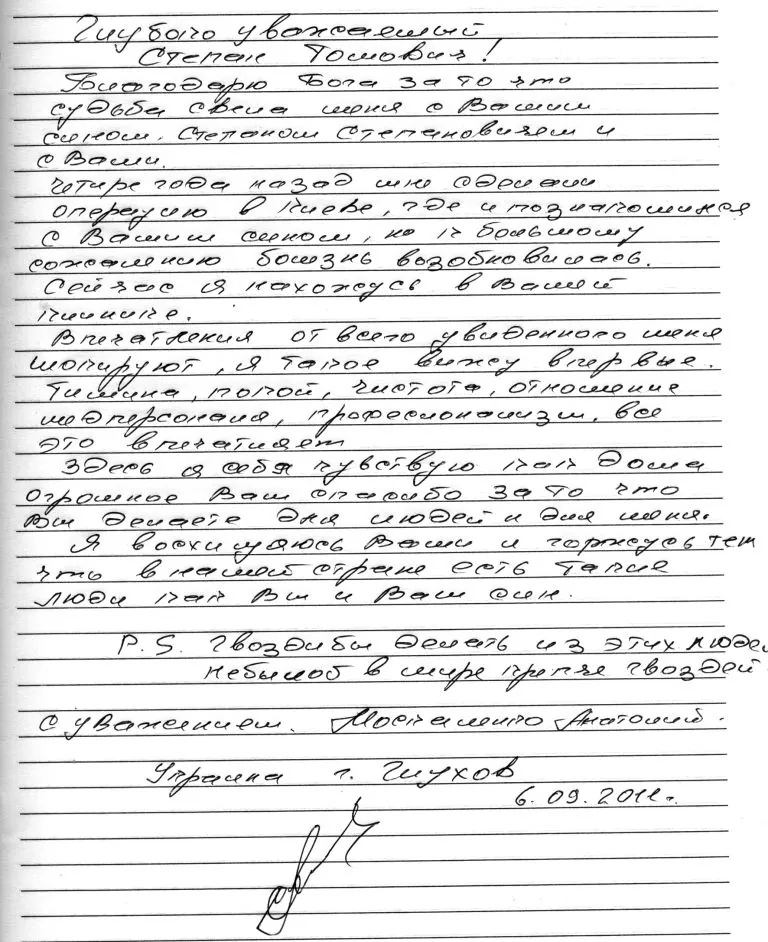 Глубоко уважаемый
Степан Томович!
Благодарю Бога за то что
судьба свела меня с Вашим
сыном. Степаном Степановичем и
с Вами.
Четыре года назад мне сделали
операцию в Киеве, где и познакомился
с Вашим сыном, но к большому
сожалению болезнь возобновилась.
Сейчас я нахожусь в Вашей
клинике.
Впечатления от всего увиденного меня
шокируют, я такое вижу впервые.
Тишина, покой, чистота, отношение
медперсонала, професионализм, все
это впечатляет
Здесь я себя чувствую как дома
огромное Вам спасибо за то что
Вы делаете для людей и для меня.
Я восхищаюсь Вами и горжусь тем
что в нашей стране есть такие
люди как Вы и Ваш сын.
P.S. Гвозди бы делать из этих людей
небылоб в мире крепче гвоздей
с уважением. Москаленко Анатолий.
Украина г. Глухов
6.09.2011г.